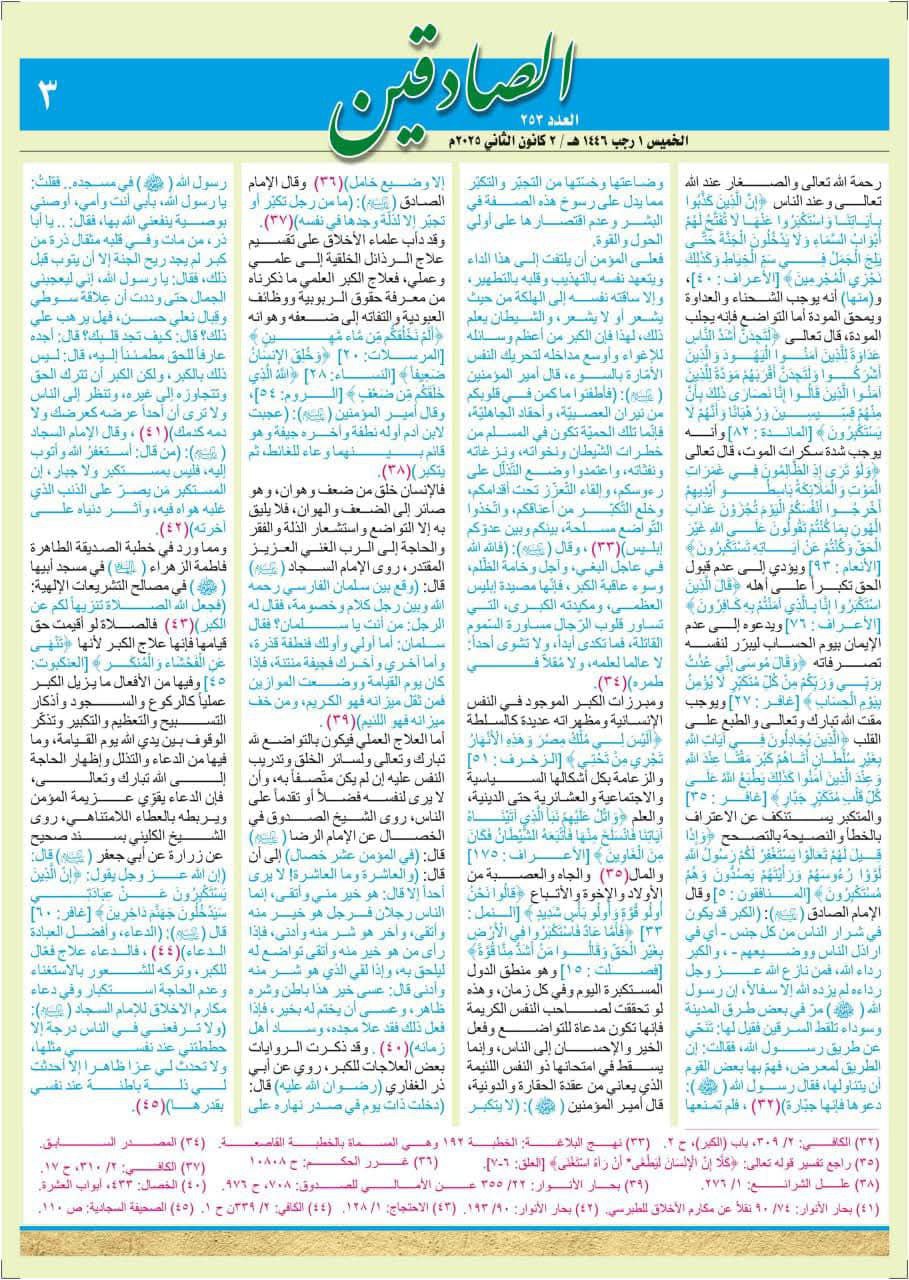 الصادقين
العدد ٢٥٣
٣
الخميس ١ رجب ١٤٤٦ هـ / ٢ كانون الثاني ٢٠٢٥م
رحمة الله تعالى والصغار عند الله
تعالى وعند الناس ﴿إِنَّ الَّذِينَ كَذَّبُوا
بِآيَاتِنَا وَاسْتَكْبَرُوا عَنْهَا لَا تُفَتَّحُ لَهُمْ
أَبْوَابُ السَّمَاءِ وَلَا يَدْخُلُونَ الْجَنَّةَ حَتَّى
يَلِجَ الْجَمَلُ فِي سَمِّ الْخِيَاطِ وَكَذَلِكَ
نَجْزِي الْمُجْرِمِينَ﴾ [الأعراف : ٤٠]،
و(منها) أنه يوجب الشحناء والعداوة
ويمحق المودة أما التواضع فإنه يجلب
المودة، قال تعالى ﴿لَتَجِدَنَّ أَشَدَّ النَّاسِ
عَدَاوَةً لِلَّذِينَ آمَنُوا الْيَهُودَ وَالَّذِينَ
أَشْرَكُوا وَلَتَجِدَنَّ أَقْرَبَهُمْ مَوَدَّةً لِلَّذِينَ
آمَنُوا الَّذِينَ قَالُوا إِنَّا نَصَارَى ذَلِكَ بِأَنَّ
مِنْهُمْ قِسِّيسِينَ وَرُهْبَانًا وَأَنَّهُمْ لَا
يَسْتَكْبِرُونَ﴾ [المائدة : ٨٢] وأنه
يوجب شدة سكرات الموت، قال تعالى
﴿وَلَوْ تَرَى إِذِ الظَّالِمُونَ فِي غَمَرَاتِ
الْمَوْتِ وَالْمَلَائِكَةُ بَاسِطُو أَيْدِيهِمْ
أَخْرِجُوا أَنْفُسَكُمُ الْيَوْمَ تُجْزَوْنَ عَذَابَ
الْهُونِ بِمَا كُنْتُمْ تَقُولُونَ عَلَى اللَّهِ غَيْرَ
الْحَقِّ وَكُنْتُمْ عَنْ آيَاتِهِ تَسْتَكْبِرُونَ﴾
[الأنعام : ٩٣] ويؤدي إلى عدم قبول
الحق تكبراً على أهله ﴿قَالَ الَّذِينَ
اسْتَكْبَرُوا إِنَّا بِالَّذِي آمَنْتُمْ بِهِ كَافِرُونَ﴾
[الأعراف : ٧٦] ويدعوه إلى عدم
الإيمان بيوم الحساب ليبرّر لنفسه
تصرفاته ﴿وَقَالَ مُوسَى إِنِّي عُذْتُ
بِرَبِّي وَرَبِّكُمْ مِنْ كُلِّ مُتَكَبِّرٍ لَا يُؤْمِنُ
بِيَوْمِ الْحِسَابِ﴾ [غافر : ٢٧] ويوجب
مقت الله تبارك وتعالى والطبع على
القلب ﴿الَّذِينَ يُجَادِلُونَ فِي آيَاتِ اللَّهِ
بِغَيْرِ سُلْطَانٍ أَتَاهُمْ كَبُرَ مَقْتًا عِنْدَ اللَّهِ
وَعِنْدَ الَّذِينَ آمَنُوا كَذَلِكَ يَطْبَعُ اللَّهُ عَلَى
كُلِّ قَلْبِ مُتَكَبِّرٍ جَبَّارٍ﴾ [غافر : ٣٥]
والمتكبر يستنكف عن الاعتراف
بالخطأ والنصيحة بالتصحح ﴿وَإِذَا
قِيلَ لَهُمْ تَعَالَوْا يَسْتَغْفِرْ لَكُمْ رَسُولُ اللَّهِ
لَوَّوْا رُءُوسَهُمْ وَرَأَيْتَهُمْ يَصُدُّونَ وَهُمْ
مُسْتَكْبِرُونَ﴾ [المنافقون : ٥] وقال
الإمام الصادق (عليه السلام): (الكبر قد يكون
في شرار الناس من كل جنس - أي في
اراذل الناس ووضيعهم - ، والكبر
رداء الله، فمن نازع الله عز وجل
رداءه لم يزده الله إلا سفالاً، إن رسول
الله (ﷺ) مرّ في بعض طرق المدينة
وسوداء تلقط السرقين فقيل لها: تنَحّي
عن طريق رسول الله، فقالت: إن
الطريق لمعرض، فهمّ بها بعض القوم
أن يتناولها، فقال رسول الله (ﷺ):
دعوها فإنها جبّارة)(٣٢) ، فلم تمنعها
وضاعتها وخسّتها من التجبّر والتكبّر
مما يدل على رسوخ هذه الصفة في
البشر وعدم اقتصارها على أولي
الحول والقوة.
فعلى المؤمن أن يلتفت إلى هذا الداء
ويتعهد نفسه بالتهذيب وقلبه بالتطهير،
وإلا ساقته نفسه إلى الهلكة من حيث
يشعر أو لا يشعر، والشيطان يعلم
ذلك، لهذا فإن الكبر من أعظم وسائله
للإغواء وأوسع مداخله لتحريك النفس
الأمّارة بالسوء، قال أمير المؤمنين
(عليه السلام): (فأطفئوا ما كمن في قلوبكم
من نيران العصبيّة، وأحقاد الجاهليّة،
فإنّما تلك الحميّة تكون في المسلم من
خطرات الشيطان ونخواته، ونزغاته
ونفثاته، واعتمدوا وضع التذلّل على
رءوسكم، وإلقاء التعزّز تحت أقدامكم،
وخلع التّكبّر من أعناقكم، واتخذوا
التّواضع مسلحة، بينكم وبين عدوّكم
إبليس)(٣٣) ، وقال (عليه السلام): (فالله الله
في عاجل البغي، وآجل وخامة الظّلم،
وسوء عاقبة الكبر، فإنها مصيدة إبليس
العظمى، ومكيدته الكبرى، التي
تساور قلوب الرّجال مساورة السّموم
القاتلة، فما تكدى أبداً، ولا تشوى أحداً:
لا عالما لعلمه، ولا مُقلاً في
طمره)(٣٤).
ومبررات الكبر الموجود في النفس
الإنسانية ومظهراته عديدة كالسلطة
﴿أَلَيْسَ لِي مُلْكُ مِصْرَ وَهَذِهِ الْأَنْهَارُ
تَجْرِي مِنْ تَحْتِي﴾ [الزخرف : ٥١]
والزعامة بكل أشكالها السياسية
والاجتماعية والعشائرية حتى الدينية،
والعلم ﴿وَاتْلُ عَلَيْهِمْ نَبَأَ الَّذِي آتَيْنَاهُ
آيَاتِنَا فَانْسَلَخَ مِنْهَا فَأَتْبَعَهُ الشَّيْطَانُ فَكَانَ
مِنَ الْغَاوِينَ﴾ [الأعراف : ١٧٥]
والمال(٣٥) والجاه والعصبة من
الأولاد والإخوة والأتباع ﴿قَالُوا نَحْنُ
أُولُو قُوَّةٍ وَأُولُو بَأْسٍ شَدِيدٍ﴾ [النمل :
٣٣] ﴿فَأَمَّا عَادٌ فَاسْتَكْبَرُوا فِي الْأَرْضِ
بِغَيْرِ الْحَقِّ وَقَالُوا مَنْ أَشَدُّ مِنَّا قُوَّةً﴾
[فصلت : ١٥] وهو منطق الدول
المستكبرة اليوم وفي كل زمان، وهذه
لو تحققت لصاحب النفس الكريمة
فإنها تكون مدعاة للتواضع وفعل
الخير والإحسان إلى الناس، وإنما
يسقط في امتحانها ذو النفس اللئيمة
الذي يعاني من عقدة الحقارة والدونية،
قال أمير المؤمنين (عليه السلام): (لا يتكبر
إلا وضيع خامل)(٣٦) وقال الإمام
الصادق (عليه السلام): (ما من رجل تكبّر أو
تجبّر إلا لذلّة وجدها في نفسه)
(٣٧).
وقد دأب علماء الأخلاق على تقسيم
علاج الرذائل الخلقية إلى علمي
وعملي، فعلاج الكبر العلمي ما ذكرناه
من معرفة حقوق الربوبية ووظائف
العبودية والتفاته إلى ضعفه وهوانه
﴿أَلَمْ نَخْلُقْكُمْ مِنْ مَاءٍ مَهِينٍ﴾
[المرسلات: ٢٠] ﴿وَخُلِقَ الْإِنْسَانُ
ضَعِيفاً﴾ [النساء: ٢٨] ﴿اللَّهُ الَّذِي
خَلَقَكُمْ مِنْ ضَعْفٍ﴾ [الروم: ٥٤]،
وقال أمير المؤمنين (عليه السلام): (عجبت
لابن آدم أوله نطفة وآخره جيفة وهو
قائم بينهما وعاء للغائط، ثم
يتكبر)(٣٨).
فالإنسان خلق من ضعف وهوان، وهو
صائر إلى الضعف والهوان، فلا يليق
به إلا التواضع واستشعار الذلة والفقر
والحاجة إلى الرب الغني العزيز
المقتدر، روى الإمام السجاد (عليه السلام)
قال: (وقع بين سلمان الفارسي رحمه
الله وبين رجل كلام وخصومة، فقال له
الرجل: من أنت يا سلمان؟ فقال
سلمان: أما أولي وأولك فنطفة قذرة،
وأما آخري وآخرك فجيفة منتنة، فإذا
كان يوم القيامة ووضعت الموازين
فمن ثقل ميزانه فهو الكريم، ومن خف
ميزانه فهو اللئيم)(٣٩).
أما العلاج العملي فيكون بالتواضع لله
تبارك وتعالى ولسائر الخلق وتدريب
النفس عليه إن لم يكن متصفاً به، وأن
لا يرى لنفسه فضلاً أو تقدماً على
الناس، روى الشيخ الصدوق في
الخصال عن الإمام الرضا (عليه السلام)
قال: (في المؤمن عشر خصال) إلى أن
قال: (والعاشرة وما العاشرة! لا يرى
أحداً إلا قال: هو خير مني وأتقى، إنما
الناس رجلان فرجل هو خير منه
وأتقى، وآخر هو شر منه وأدنى، فإذا
رأى من هو خير منه وأتقى تواضع له
ليلحق به، وإذا لقي الذي هو شر منه
وأدنى قال: عسى خير هذا باطن وشره
ظاهر، وعسى أن يختم له بخير، فإذا
فعل ذلك فقد علا مجده، وساد أهل
زمانه)(٤٠) . وقد ذكرت الروايات
بعض العلاجات للكبر، روي عن أبي
ذر الغفاري (رضوان الله عليه) قال:
(دخلت ذات يوم في صدر نهاره على
رسول الله (ﷺ) في مسجده.. فقلتُ:
يا رسول الله، بأبي أنت وأمي، أوصني
بوصية ينفعني الله بها، فقال: .. يا أبا
ذر، من مات وفي قلبه مثقال ذرة من
كبر لم يجد ريح الجنة إلا أن يتوب قبل
ذلك، فقال: يا رسول الله، إني ليعجبني
الجمال حتى وددت أن علاقة سوطي
وقبال نعلي حسن، فهل يرهب علي
ذلك؟ قال: كيف تجد قلبك؟ قال: أجده
عارفاً للحق مطمئناً إليه، قال: ليس
ذلك بالكبر، ولكن الكبر أن تترك الحق
وتتجاوزه إلى غيره، وتنظر إلى الناس
ولا ترى أن أحداً عرضه كعرضك ولا
دمه كدمك)(٤١) ، وقال الإمام السجاد
(عليه السلام): (من قال: أستغفرُ الله وأتوب
إليه، فليس بمستكبر ولا جبار، إن
المستكبر من يصرّ على الذنب الذي
غلبه هواه فيه، وآثر دنياه على
آخرته)(٤٢).
ومما ورد في خطبة الصديقة الطاهرة
فاطمة الزهراء (عليها السلام) في مسجد أبيها
(ﷺ) في مصالح التشريعات الإلهية:
(فجعل الله الصلاة تنزيهاً لكم عن
الكبر)(٤٣) فالصلاة لو أقيمت حق
قيامها فإنها علاج الكبر لأنها ﴿تَنْهَى
عَنِ الْفَحْشَاءِ وَالْمُنْكَرِ﴾ [العنكبوت:
٤٥] وفيها من الأفعال ما يزيل الكبر
عملياً كالركوع والسجود وأذكار
التسبيح والتعظيم والتكبير وتذكّر
الوقوف بين يدي الله يوم القيامة، وما
فيها من الدعاء والتذلل وإظهار الحاجة
إلى الله تبارك وتعالى،
فإن الدعاء يقوّي عزيمة المؤمن
ويربطه بالعطاء اللامتناهي، روى
الشيخ الكليني بسند صحيح
عن زرارة عن أبي جعفر (عليه السلام) قال:
(إن الله عز وجل يقول: ﴿إِنَّ الَّذِينَ
يَسْتَكْبِرُونَ عَنْ عِبَادَتِي
سَيَدْخُلُونَ جَهَنَّمَ دَاخِرِينَ﴾ [غافر: ٦٠]
قال (عليه السلام): (الدعاء، وأفضل العبادة
الدعاء)(٤٤) ، فالدعاء علاج فعّال
للكبر، وتركه للشعور بالاستغناء
وعدم الحاجة استكبار وفي دعاء
مكارم الاخلاق للإمام السجاد (عليه السلام)
(ولا ترفعني في الناس درجة إلا
حططتني عند نفسي مثلها،
ولا تحدث لي عزا ظاهرا إلا أحدثت
لي ذلة باطنة عند نفسي
بقدرها)(٤٥).
(٣٢) الكافي: ٢/ ٣٠٩، باب (الكبر)، ح ٢. (٣٣) نهج البلاغة: الخطبة ١٩٢ وهي المسماة بالخطبة القاصعة. (٣٤) المصدر السابق.
(٣٥) راجع تفسير قوله تعالى: ﴿كَلَّا إِنَّ الْإِنْسَانَ لَيَطْغَى* أَنْ رَآهُ اسْتَغْنَى﴾ [العلق: ٦-٧]. (٣٦) غرر الحكم: ح ١٠٨٠٨ (٣٧) الكافي: ٢/ ٣١٠، ح ١٧.
(٣٨) علل الشرائع: ١/ ٢٧٦. (٣٩) بحار الأنوار: ٢٢/ ٣٥٥ عن الأمالي للصدوق: ٧٠٨، ح ٩٧٦. (٤٠) الخصال: ٤٣٣، أبواب العشرة.
(٤١) بحار الأنوار: ٧٤/ ٩٠ نقلاً عن مكارم الأخلاق للطبرسي. (٤٢) بحار الأنوار: ٩٠/ ١٩٣. (٤٣) الاحتجاج: ١/ ١٢٨. (٤٤) الكافي: ٢/ ٣٣٩ن ح ١. (٤٥) الصحيفة السجادية: ص ١١٠.